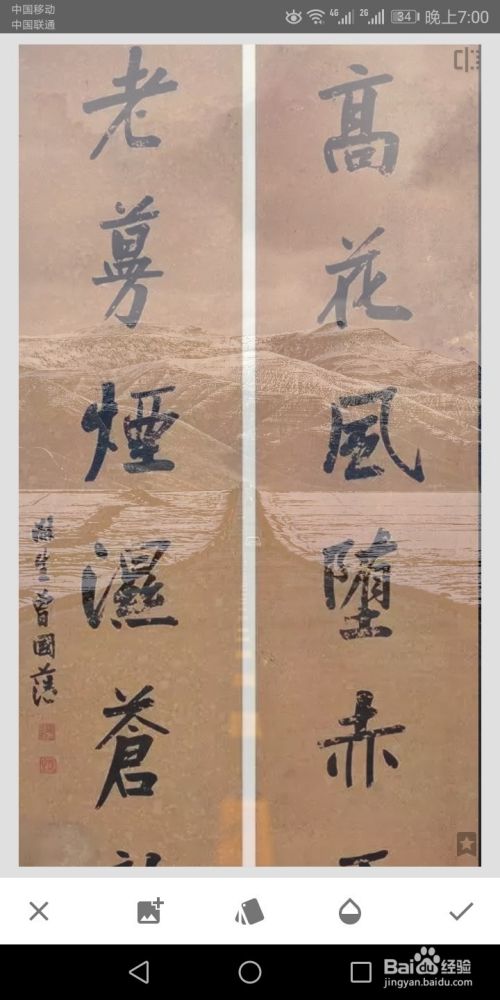 中国移动
中国联通
4G 2G 34 晚上7:00
高花風堕赤
老蔓煙濕蒼
滌生曾國藩
Baidu经验
jingyan.baidu.com